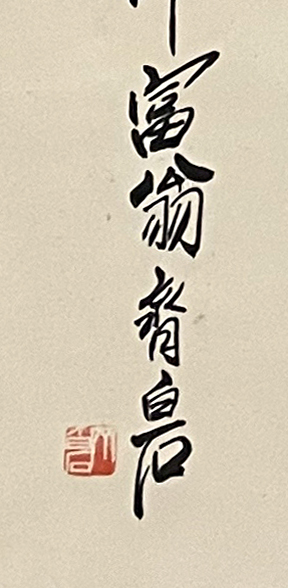 富翁齊白石